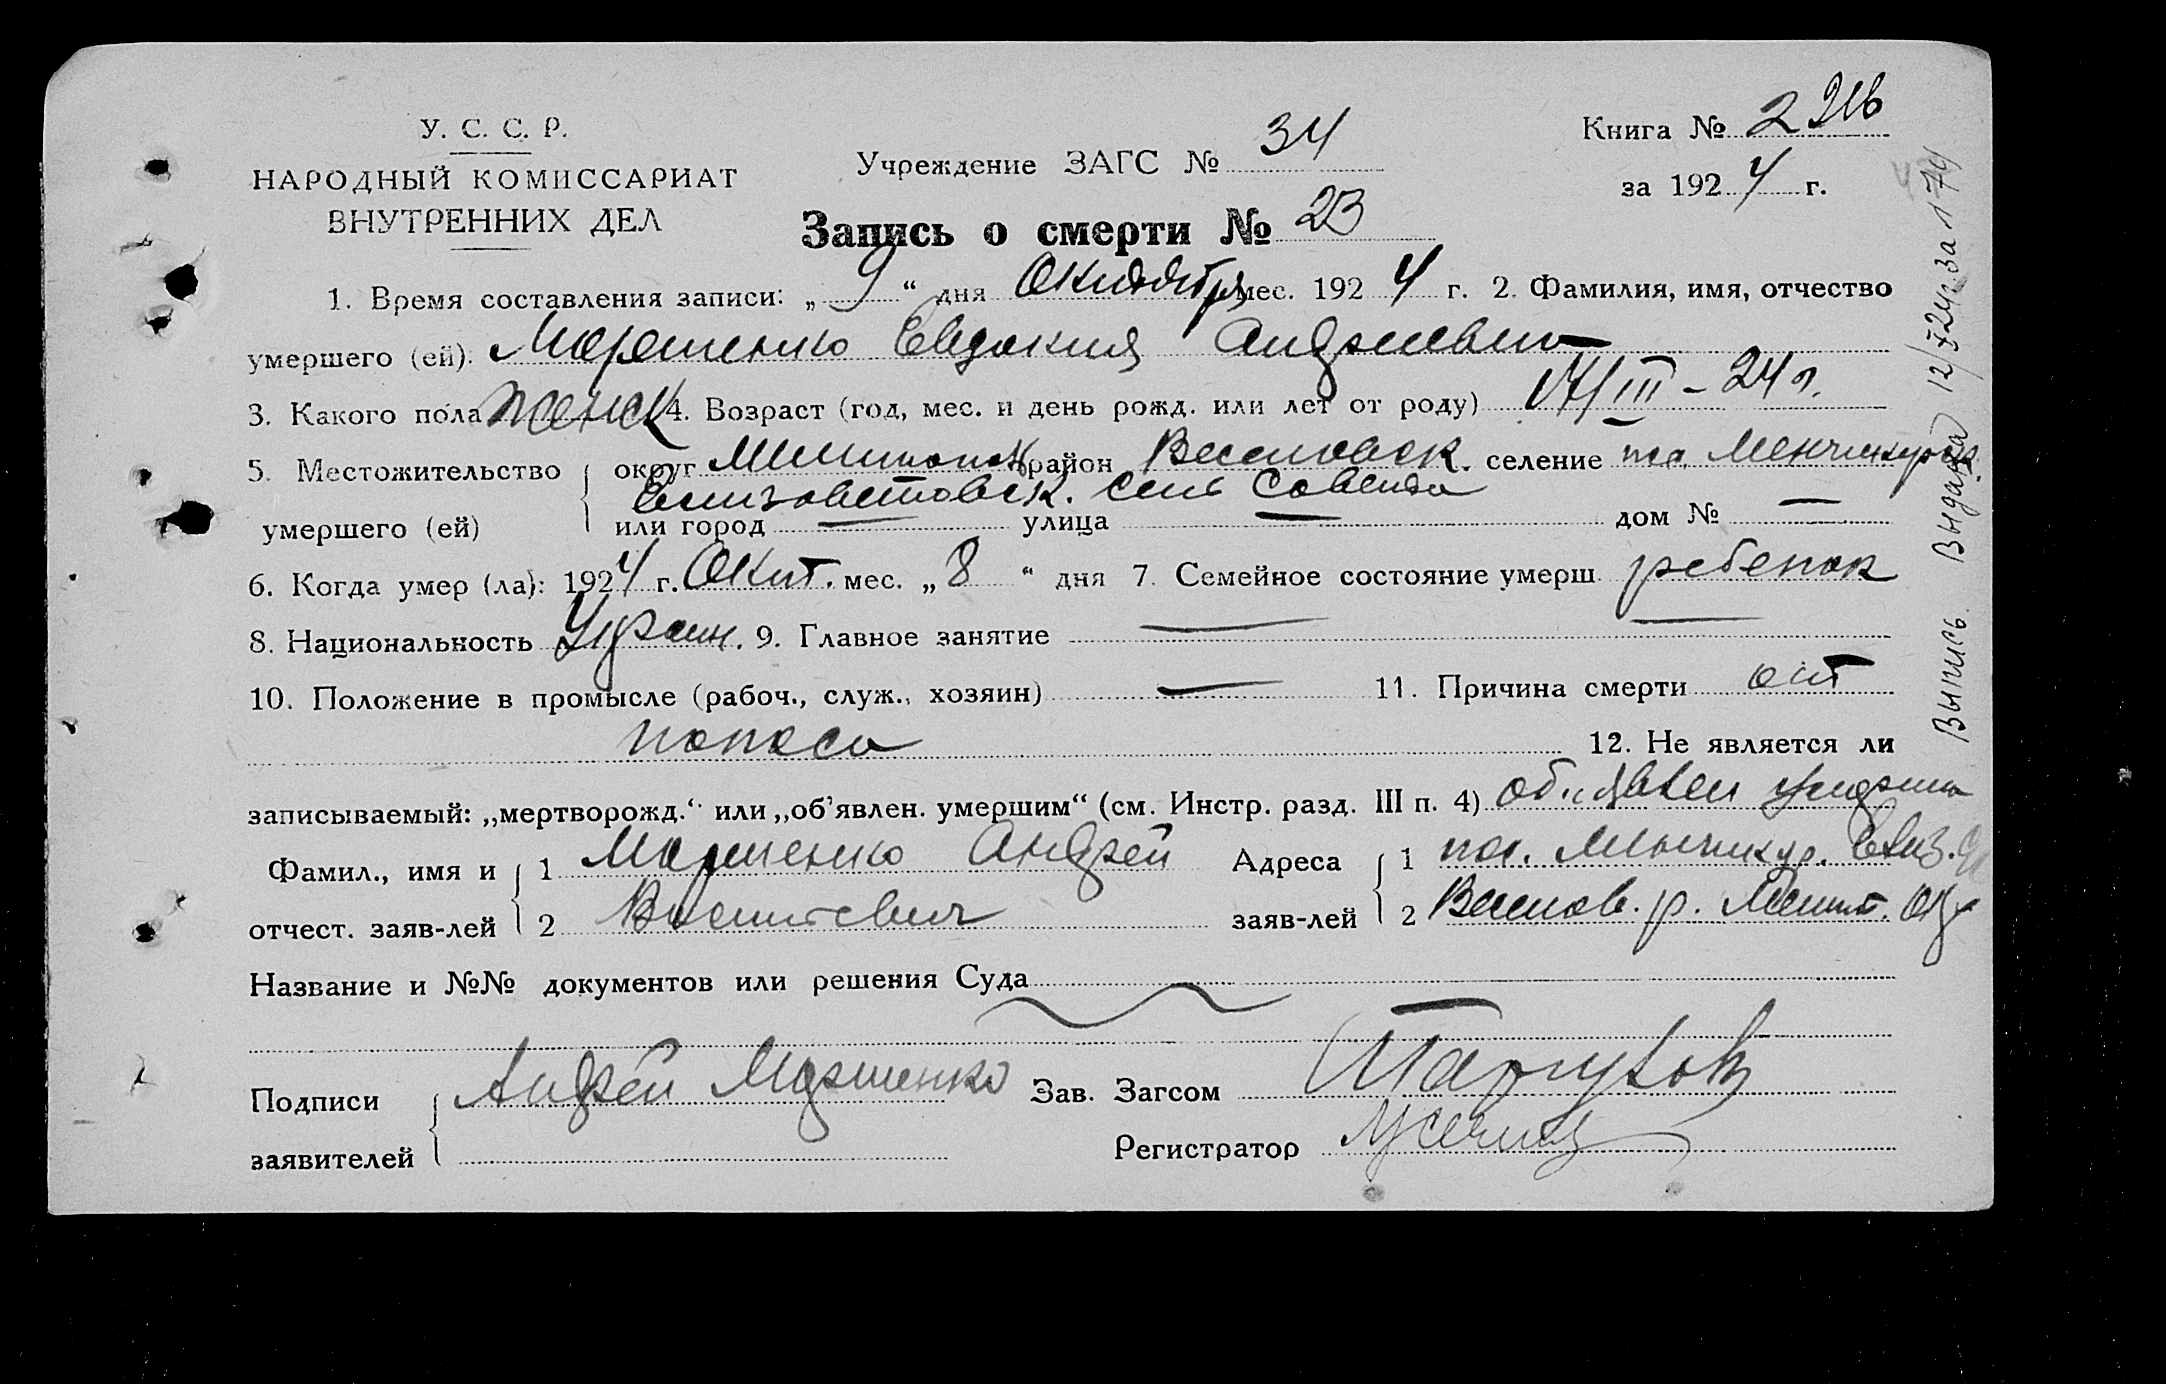 У. С. С. Р.
НАРОДНЫЙ КОМИССАРИАТ
ВНУТРЕННИХ ДЕЛ
Учреждение ЗАГС № 34
Книга № 2
за 1924 г.
Запись о смерти № 23
1. Время составления записи: „9“ дня Октября мес. 1924 г. 2. Фамилия, имя, отчество
умершего (ей). Марченко Евдокия
3. Какого пола женск 4. Возраст (год, мес. и день рожд. или лет от роду) III – 24 г.
5. Местожительство умершего (ей) округ район Веселовск. селение пос. Менчикуров.
Елизаветовск. Сель Совета
или город — улица — дом № —
6. Когда умер (ла): 1924 г. Окт. мес. „8“ дня 7. Семейное состояние умерш. ребенок
8. Национальность Украин. 9. Главное занятие —
10. Положение в промысле (рабоч., служ., хозяин) — 11. Причина смерти от
поноса 12. Не является ли
записываемый: „мертворожд.“ или „об’явлен. умершим“ (см. Инстр. разд. III п. 4) об'явлен умершим
Фамил., имя и отчест. заяв-лей 1 Марченко Андрей
2
Адреса заяв-лей 1 пос. Менчикур. Елиз.
2 Веселов. р. Мелит. Окр
Название и №№ документов или решения Суда
Подписи заявителей Андрей Марченко
Зав. Загсом
Регистратор
Выпись выдана 12/X 24 г. за № 174